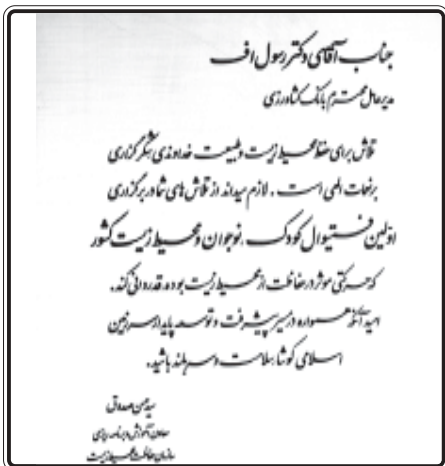 جناب آقای دکتر رسول اف
مدیرعامل محترم بانک کشاورزی
تلاش برای حفظ محیط زیست و طبیعت خداوندی شکرگزاری
برنعمات الهی است . لازم میداند از تلاش های شما در برگزاری
اولین فستیوال کودک، نوجوان و محیط زیست کشور
که حرکتی موثر در حفاظت از محیط زیست بوده، قدردانی کند.
امید آنکه همواره در مسیر پیشرفت و توسعه پایدار سرزمین
اسلامی کوشا، سلامت و سربلند باشید.
سید محسن صدوقی
معاون آموزش و برنامه ریزی
سازمان حفاظت محیط زیست